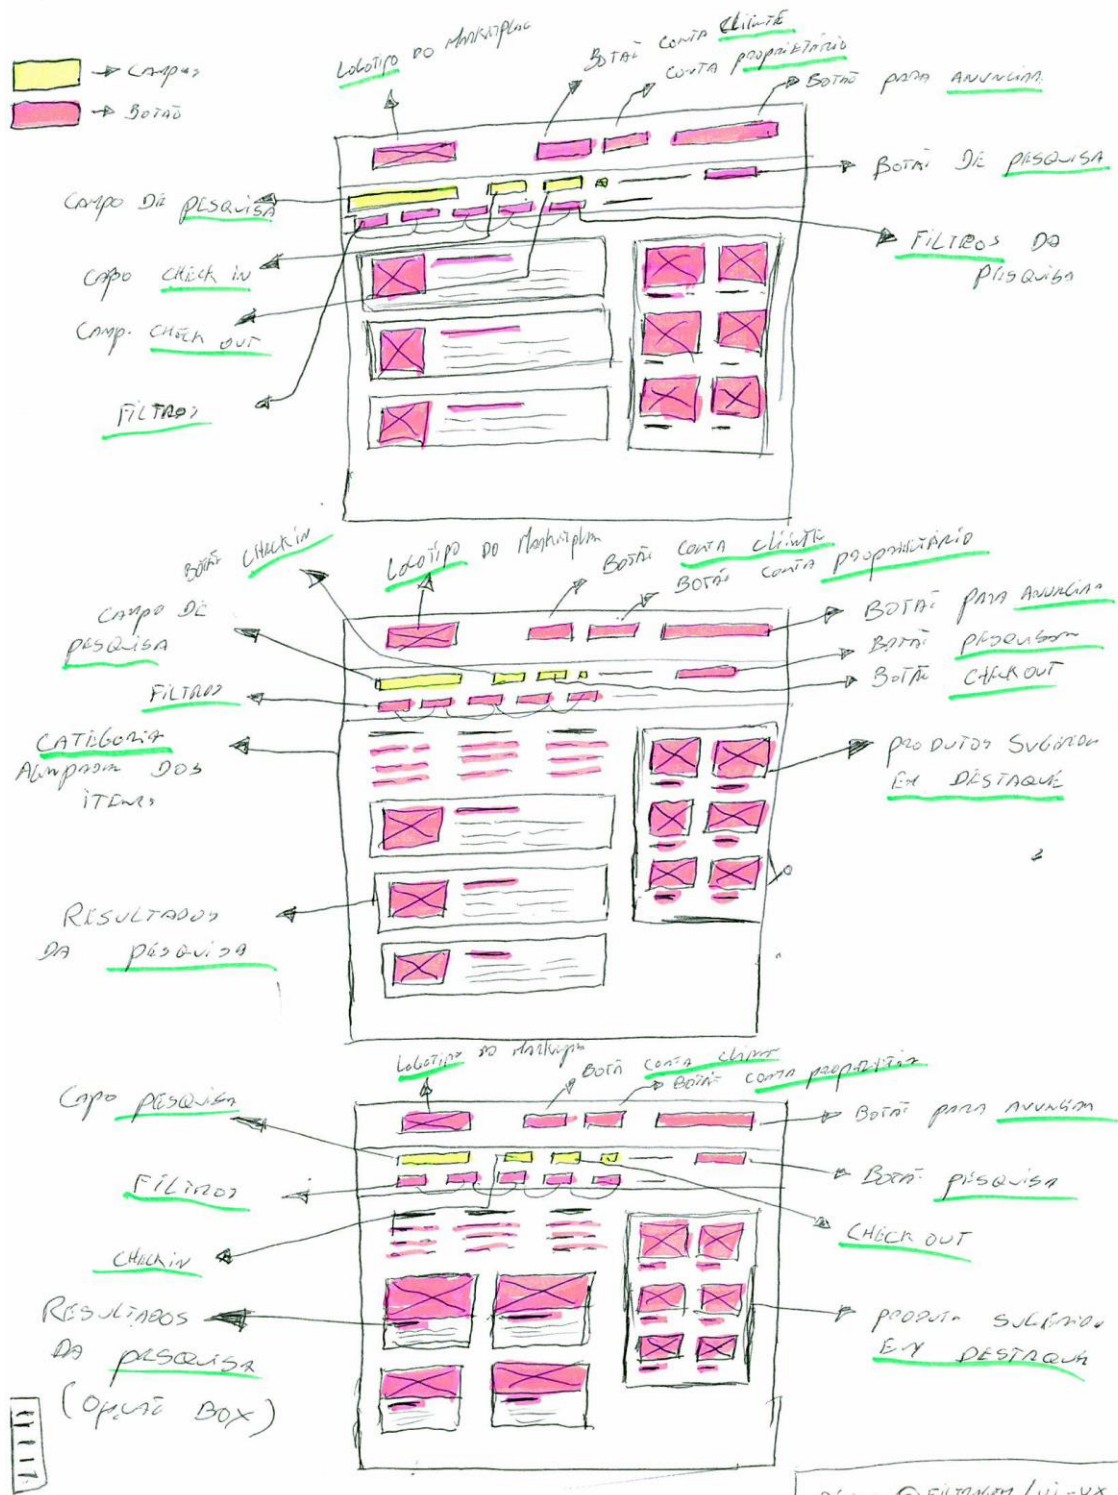 CAMPOS
BOTÃO
LOGOTIPO DO Marketplace
BOTÃO CONTA CLIENTE
CONTA PROPRIETÁRIO
BOTÃO PARA ANUNCIAR
BOTÃO DE PESQUISA
CAMPO DE PESQUISA
FILTROS DA
PESQUISA
CAPO CHECK IN
CAMP. CHECK OUT
FILTROS
BOTÃO CHECKIN
LOGOTIPO DO Marketplace
BOTÃO CONTA CLIENTE
BOTÃO CONTA PROPRIETÁRIO
CAMPO DE
PESQUISA
BOTÃO PARA ANUNCIAR
BOTÃO PESQUISAR
BOTÃO CHECKOUT
FILTROS
CATEGORIA
DOS
ITENS
PRODUTOS SUGERIDOS
EM DESTAQUE
RESULTADOS
DA PESQUISA
LOGOTIPO DO
BOTÃO CONTA CLIENTE
BOTÃO CONTA
CAPO PESQUISA
BOTÃO PARA ANUNCIAR
FILTROS
BOTÃO PESQUISA
CHECKIN
CHECK OUT
RESULTADOS
DA PESQUISA
(OPÇÃO BOX)
EM DESTAQUE
FILTRAGEM / UI-UX